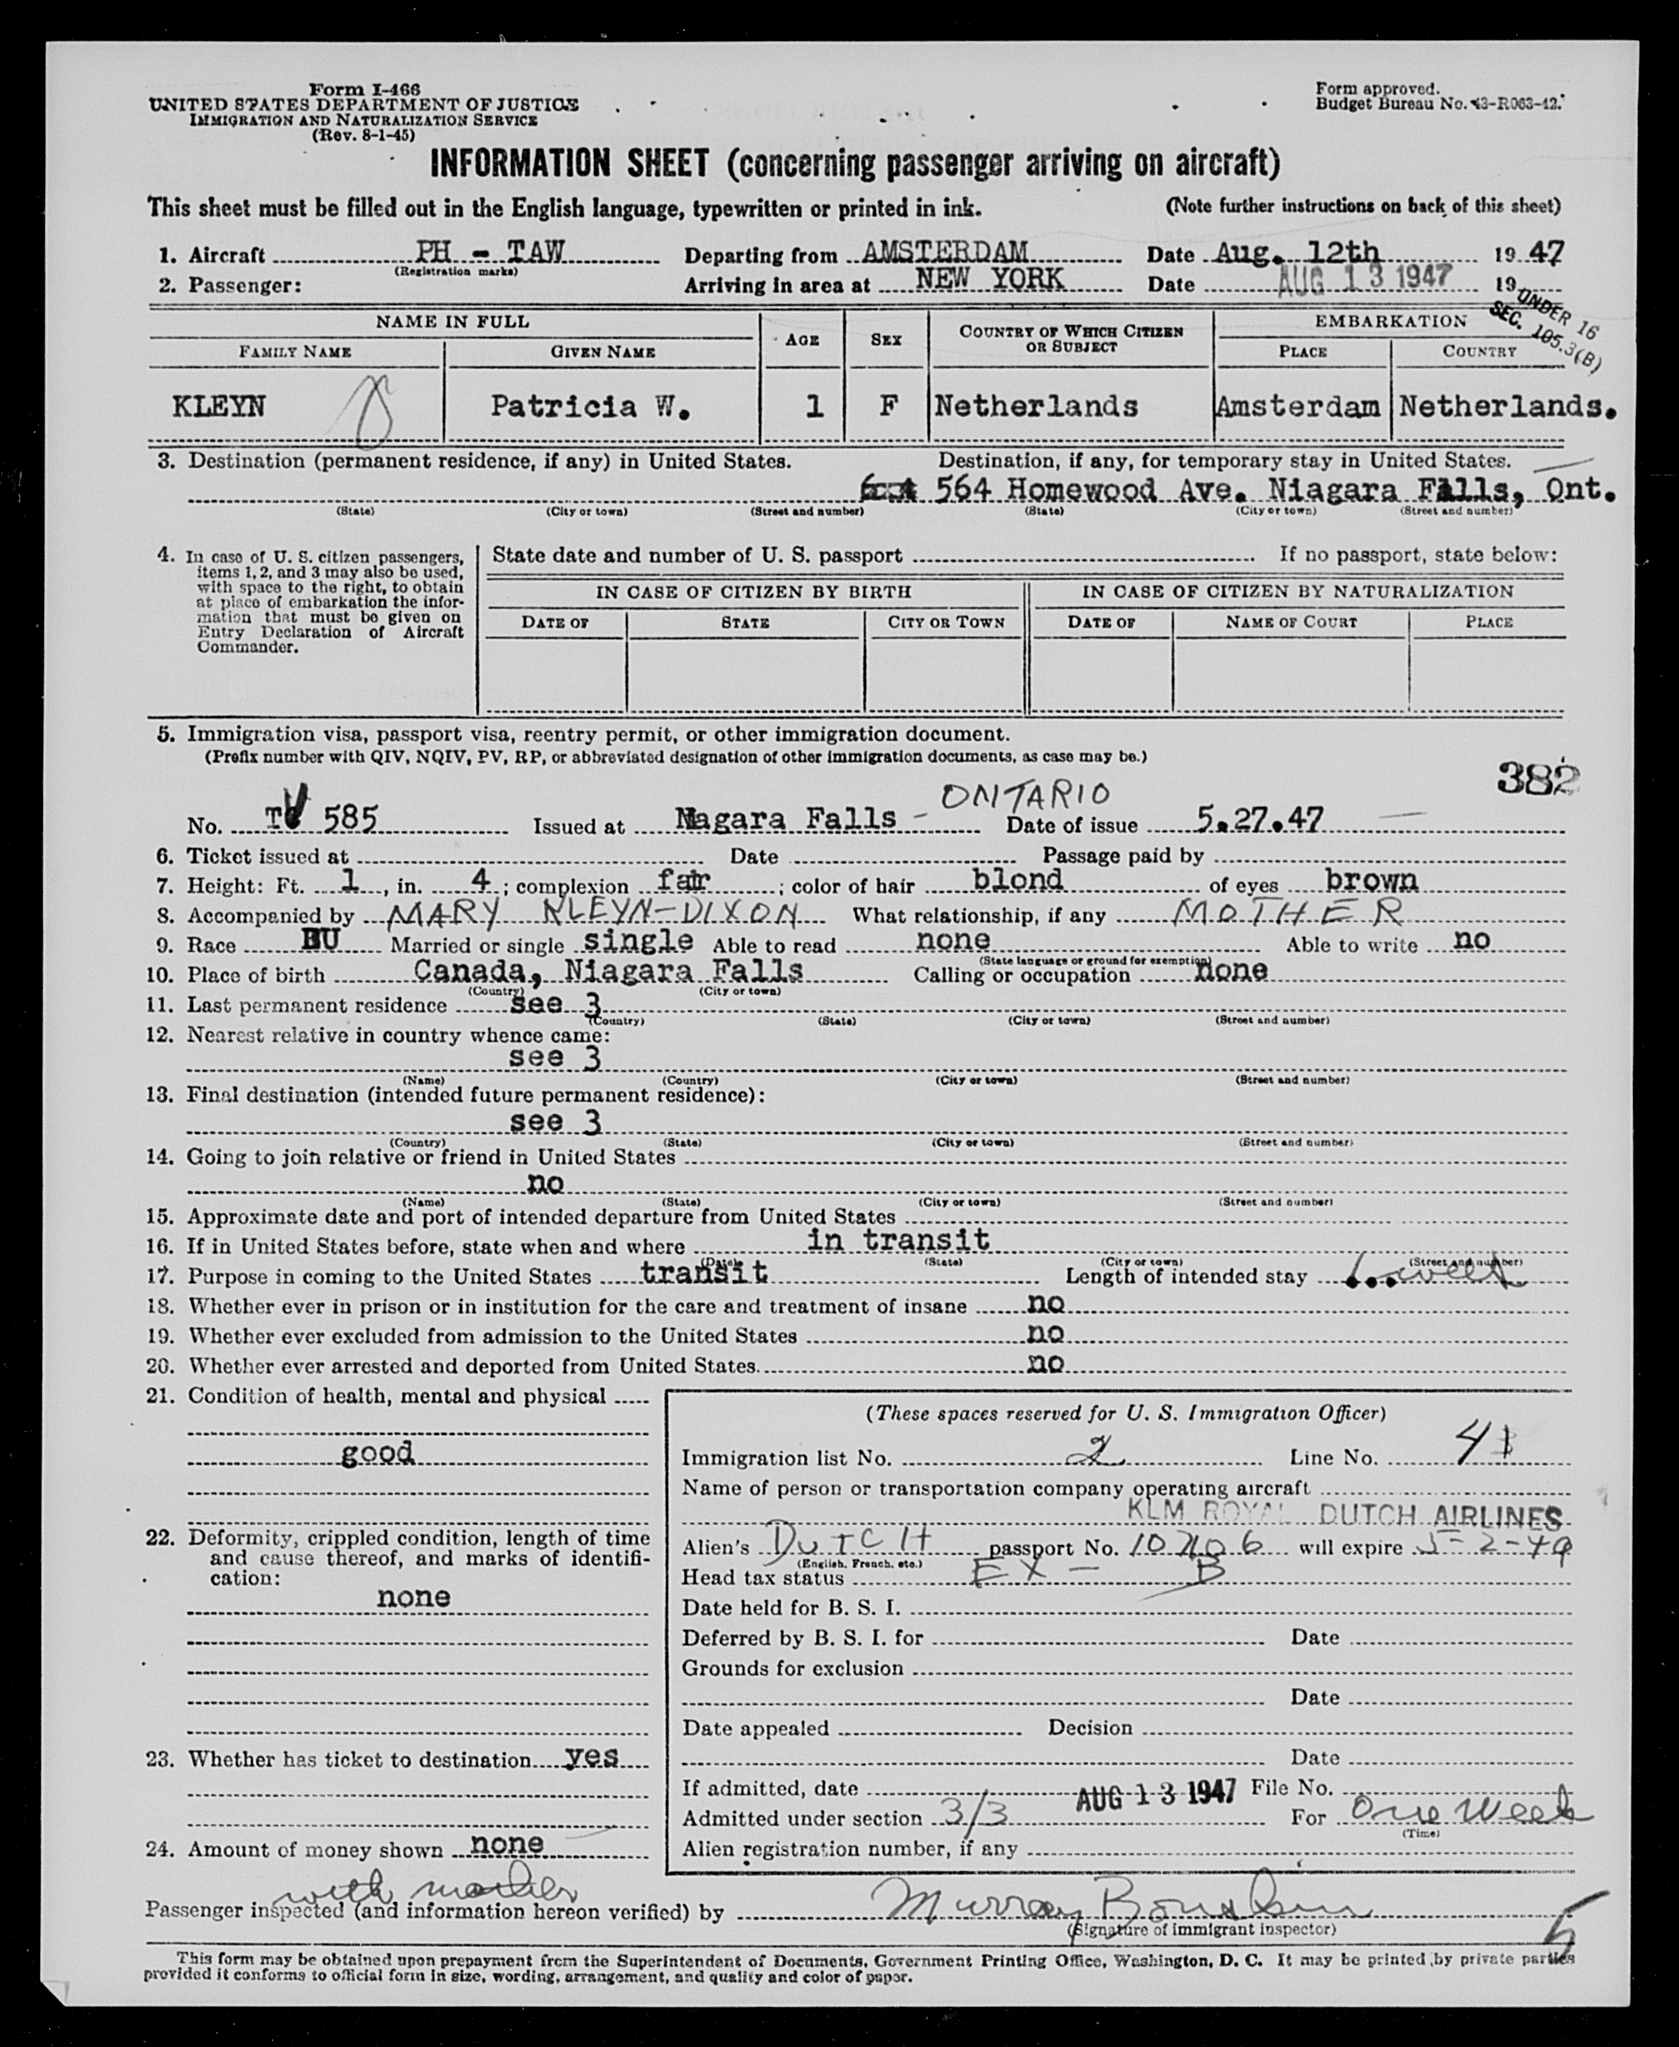 Form I-466
UNITED STATES DEPARTMENT OF JUSTICE
IMMIGRATION AND NATURALIZATION SERVICE
(Rev. 8-1-45)
Form approved.
Budget Bureau No. 43-R063-42.
INFORMATION SHEET (concerning passenger arriving on aircraft)
This sheet must be filled out in the English language, typewritten or printed in ink. (Note further instructions on back of this sheet)
1. Aircraft PH - TAW Departing from AMSTERDAM Date Aug. 12th 19 47
(Registration marks)
2. Passenger: Arriving in area at NEW YORK Date AUG 13 1947 19
UNDER 16
SEC. 105.3(B)
NAME IN FULL AGE SEX COUNTRY OF WHICH CITIZEN OR SUBJECT EMBARKATION
FAMILY NAME GIVEN NAME PLACE COUNTRY
KLEYN Patricia W. 1 F Netherlands Amsterdam Netherlands.
3. Destination (permanent residence, if any) in United States. Destination, if any, for temporary stay in United States.
564 Homewood Ave. Niagara Falls, Ont.
(State) (City or town) (Street and number) (State) (City or town) (Street and number)
4. In case of U. S. citizen passengers, items 1, 2, and 3 may also be used, with space to the right, to obtain at place of embarkation the information that must be given on Entry Declaration of Aircraft Commander.
State date and number of U. S. passport If no passport, state below:
IN CASE OF CITIZEN BY BIRTH IN CASE OF CITIZEN BY NATURALIZATION
DATE OF STATE CITY OR TOWN DATE OF NAME OF COURT PLACE
5. Immigration visa, passport visa, reentry permit, or other immigration document.
(Prefix number with QIV, NQIV, PV, RP, or abbreviated designation of other immigration documents, as case may be.)
382
ONTARIO
No. TV 585 Issued at Nagara Falls - Date of issue 5.27.47
6. Ticket issued at Date Passage paid by
7. Height: Ft. 1, in. 4; complexion fair; color of hair blond of eyes brown
8. Accompanied by MARY KLEYN-DIXON What relationship, if any MOTHER
9. Race DU Married or single single Able to read none Able to write no
(State language or ground for exemption)
10. Place of birth Canada, Niagara Falls Calling or occupation none
(Country) (City or town)
11. Last permanent residence see 3
(Country) (State) (City or town) (Street and number)
12. Nearest relative in country whence came:
see 3
(Name) (Country) (City or town) (Street and number)
13. Final destination (intended future permanent residence):
see 3
(Country) (State) (City or town) (Street and number)
14. Going to join relative or friend in United States
no
(Name) (State) (City or town) (Street and number)
15. Approximate date and port of intended departure from United States
16. If in United States before, state when and where in transit
(Date) (State) (City or town) (Street and number)
17. Purpose in coming to the United States transit Length of intended stay 1 week
18. Whether ever in prison or in institution for the care and treatment of insane no
19. Whether ever excluded from admission to the United States no
20. Whether ever arrested and deported from United States. no
21. Condition of health, mental and physical
good
22. Deformity, crippled condition, length of time and cause thereof, and marks of identification:
none
23. Whether has ticket to destination yes
24. Amount of money shown none
(These spaces reserved for U. S. Immigration Officer)
Immigration list No. 2 Line No. 4
Name of person or transportation company operating aircraft
KLM ROYAL DUTCH AIRLINES
Alien's DUTCH passport No. will expire 5-2-49
(English, French, etc.)
Head tax status EX - B
Date held for B. S. I.
Deferred by B. S. I. for Date
Grounds for exclusion
Date
Date appealed Decision
Date
If admitted, date AUG 13 1947 File No.
Admitted under section 3/3 For One Week
(Time)
Alien registration number, if any
with mother
Passenger inspected (and information hereon verified) by Murray
(Signature of immigrant inspector)
5
This form may be obtained upon prepayment from the Superintendent of Documents, Government Printing Office, Washington, D. C. It may be printed by private parties
provided it conforms to official form in size, wording, arrangement, and quality and color of paper.